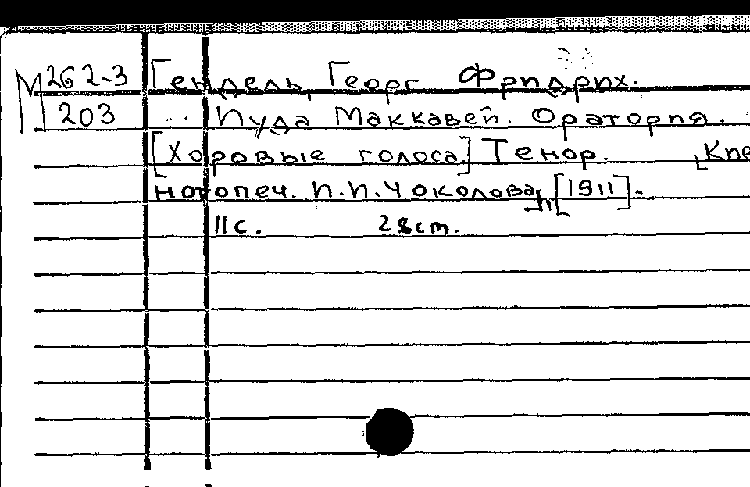 М 262-3 Гендель, Георг Фридрих.
203 Иуда Маккавей. Оратория.
[Хоровые голоса] Тенор.
нотопеч. П.П. Чоколова, [1911].
11 с. 28 cm.